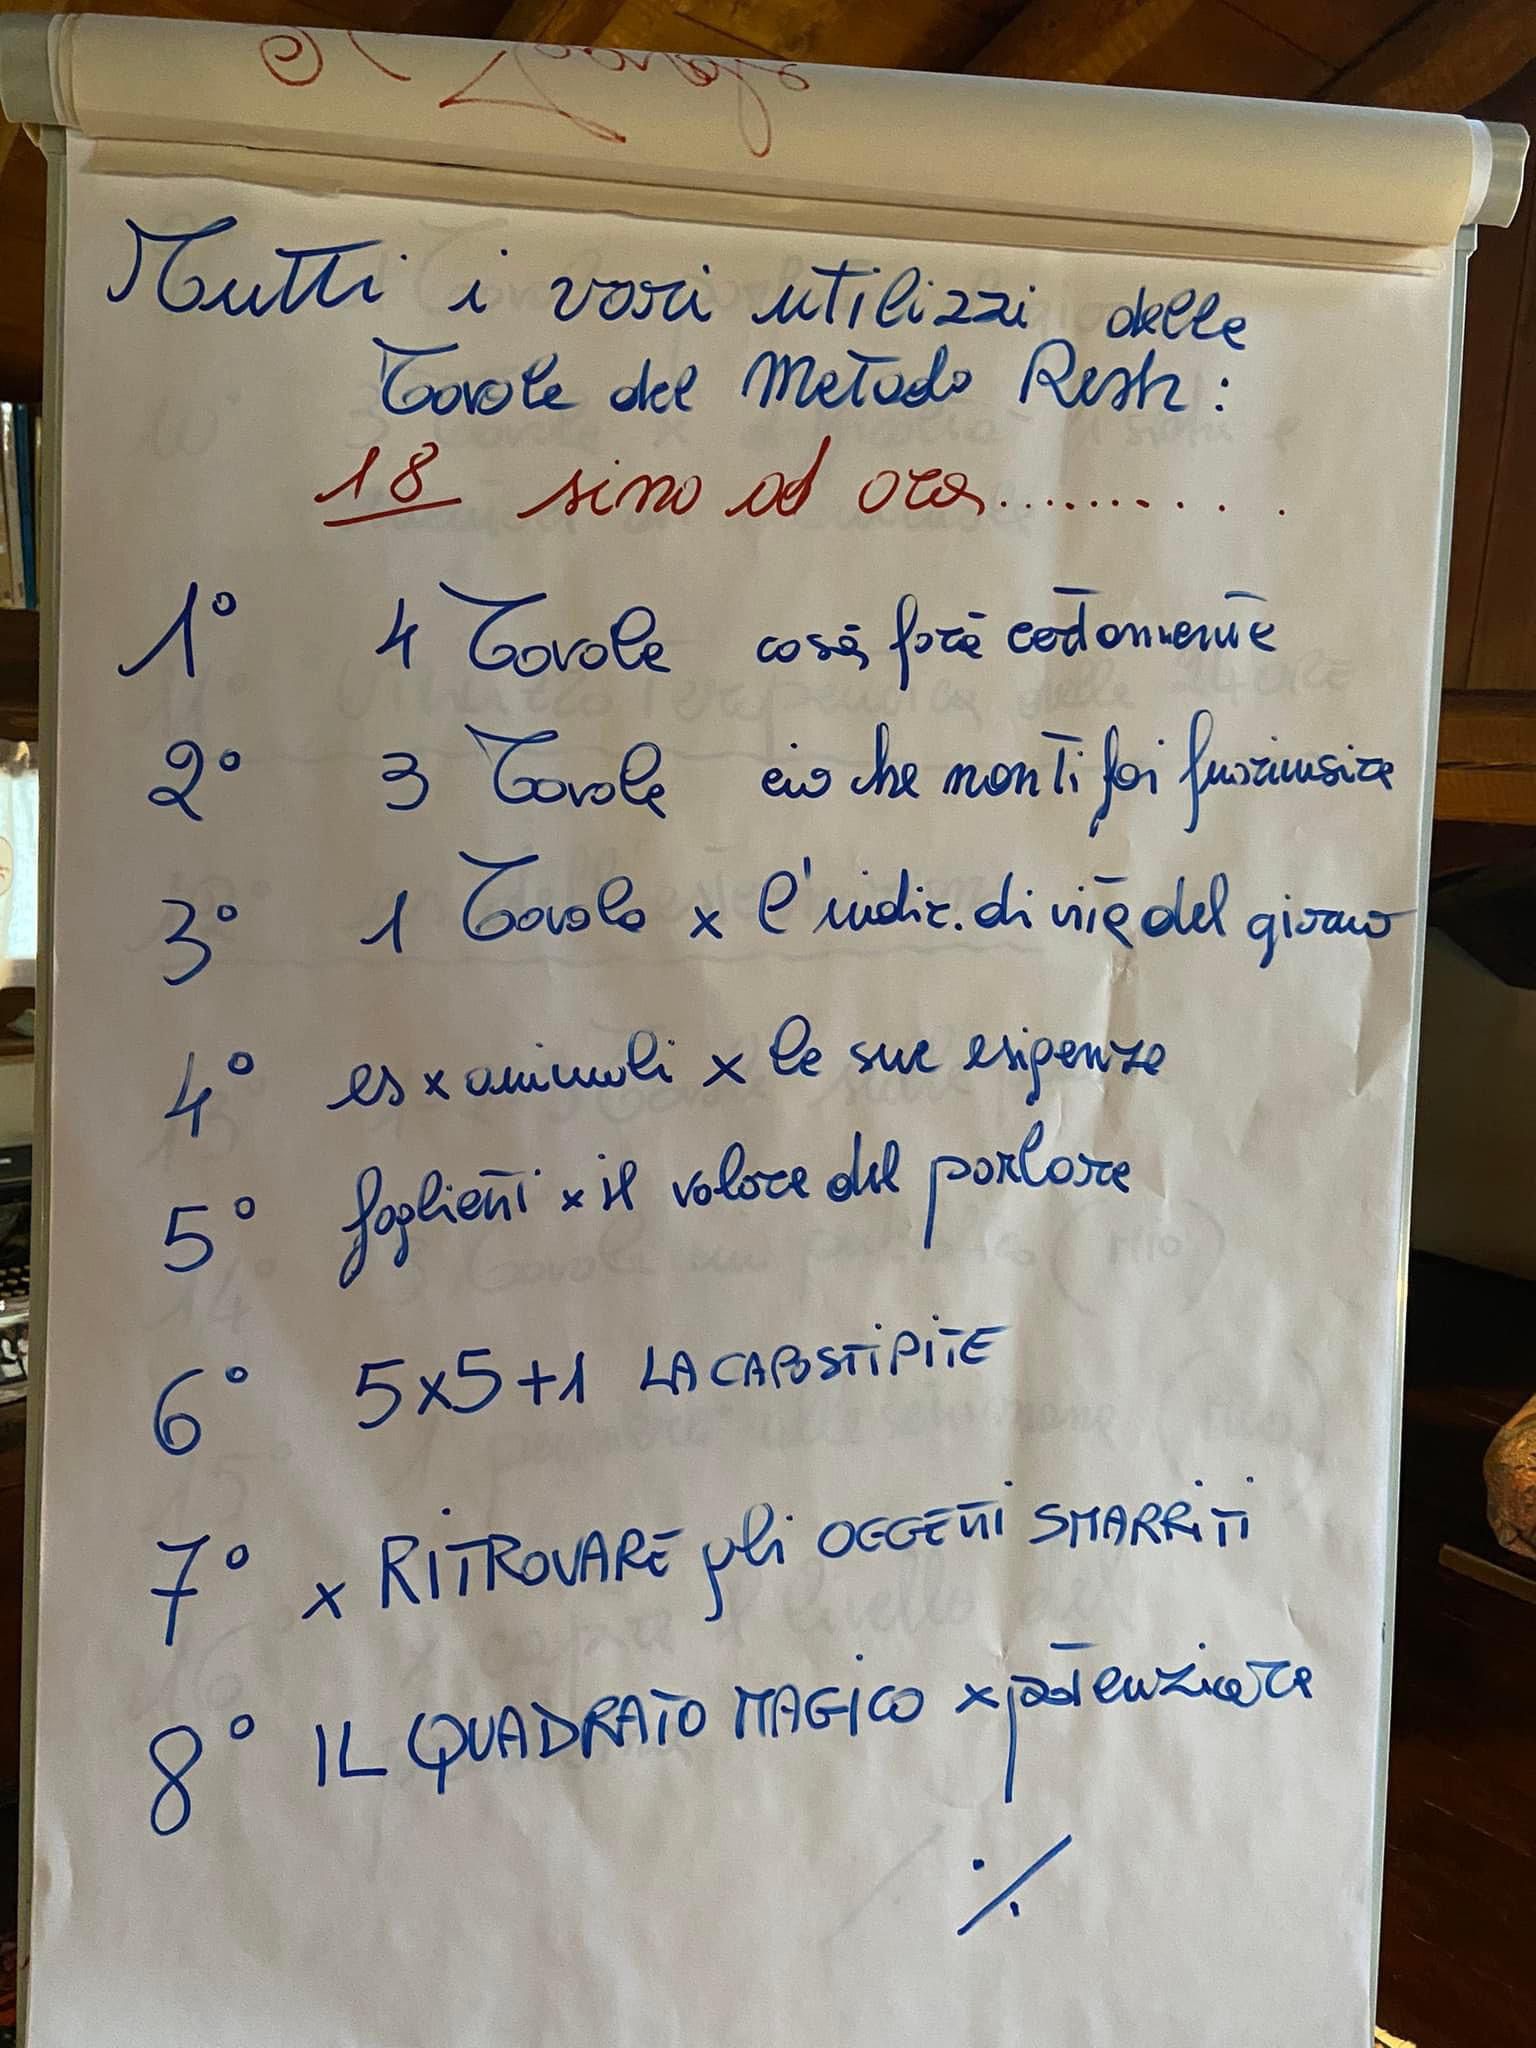 Tutti i vari utilizzi delle
Tavole del Metodo Resh:
18 sino ad ora..........
1° 4 Tavole cosa farà
2° 3 Tavole ciò che non ti fai fuoriuscire
3° 1 Tavola x l'indic. di vita del giorno
4° es x animali x le sue esigenze
5° foglietti x il valore del parlare
6° 5x5+1 LA CAPOSTIPITE
7° x RITROVARE gli OGGETTI SMARRITI
8° IL QUADRATO MAGICO x potenziare
./.